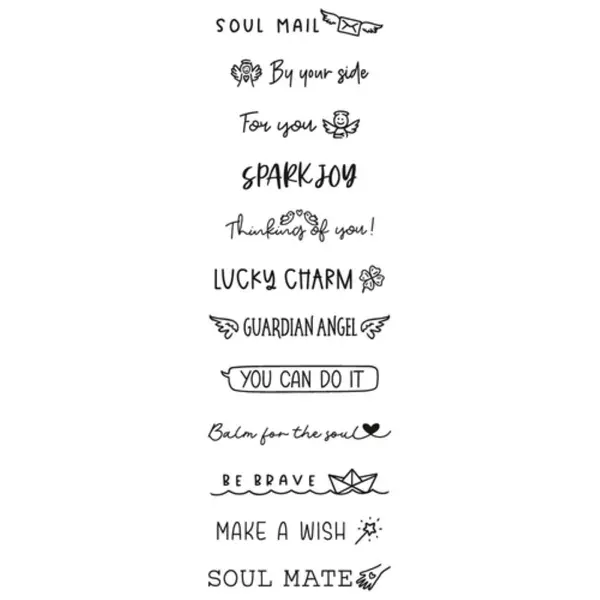 SOUL MAIL
By your side
For you
SPARK JOY
Thinking of you!
LUCKY CHARM
GUARDIAN ANGEL
YOU CAN DO IT
Balm for the soul
BE BRAVE
MAKE A WISH
SOUL MATE